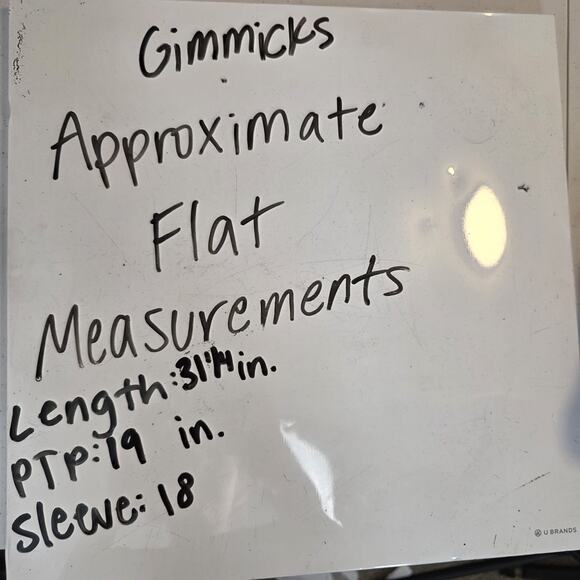 Gimmicks
Approximate
Flat
Measurements
Length: 31 1/4 in.
PTP: 19 in.
Sleeve: 18
U BRANDS